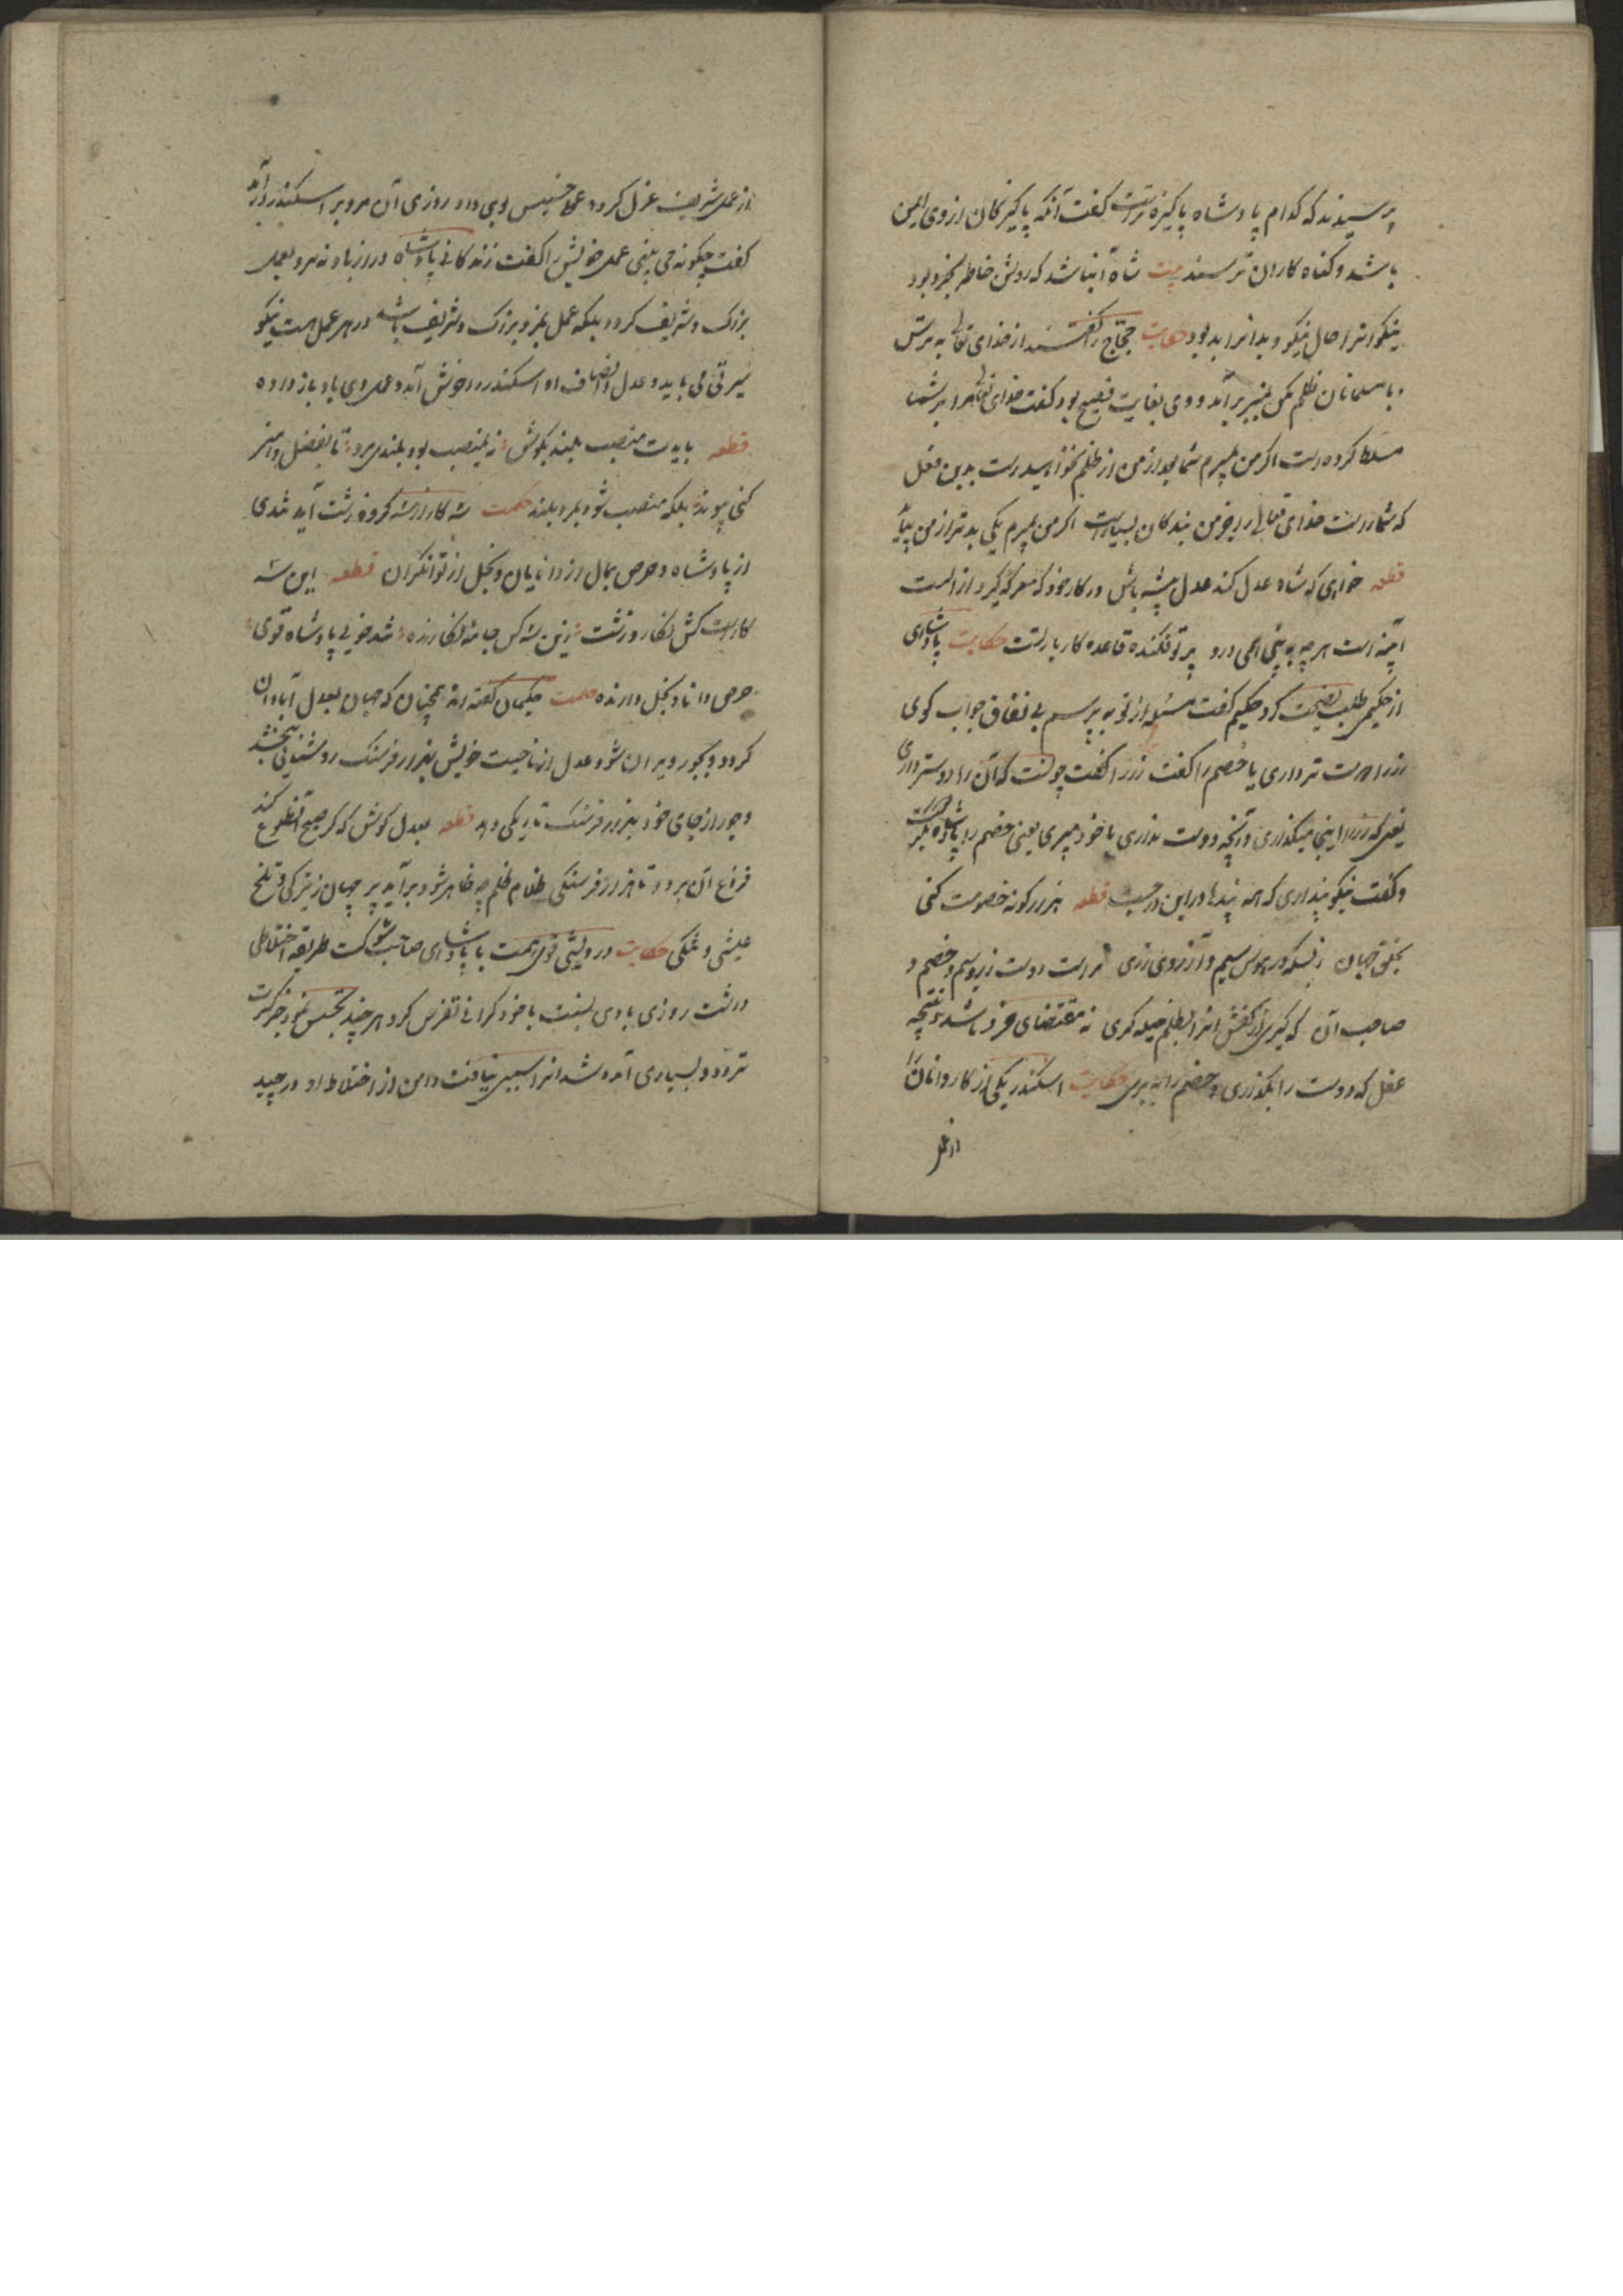 پرسیدند که کدام پادشاه پاکیزه ترست گفت آنکه پاکیزکان از وی ایمن
باشند و کناه کاران ترسند بیت شاه آن باشد که روشن خاطر بخرد بود
نیکوانرا حال نیکو و بدانرا بد بود حکایت حجّاج را گفتند از خدای تعالی بترس
و با مسلمانان ظلم مکن بمنبر برآمد و وی بغایت فصیح بود گفت خدای تعالی مرا بر شما
مسلط کرده است اگر من بمیرم شما بعد از من از ظلم نخواهید رست بدین فعل
که شماراست خدای تعالی را جز من بندکان بسیارست اگر من بمیرم یکی بدتر از من بیاید
قطعه خواهی که شاه عدل کند عدل پیشه باش در کار خود که معرکه گیرودار است
آینه است هر چه به بینی همی درو پرتو فکنده قاعده کار بار تست حکایت پادشاهی
از حکیمی طلب نصیحت کرد حکیم گفت مسئله از تو بپرسم بی نفاق جواب گوی
زر را دوست تر داری یا خصم را گفت زر را گفت چونست که آن را دوستر داری
یعنی که زر را اینجا میگذاری و آنچه دوست نداری با خود میبری یعنی خصم را پادشاه بگریست
و گفت نیکو پند دادی که همه پندها در این درجست قطعه هزار کونه خصومت کنی
بخلق جهان ز بسکه در هوس سیم و آرزوی زری تراست دوست زر و سیم و خصم و
صاحب آن که گیری از کفش آنرا بظلم حیله گری نه مقتضای خرد باشد و نتیجه
عقل که دوست را بگذاری و خصم را ببری حکایت اسکندر یکی از کاردانان را
از عمل
از عمل شریف عزل کرد و عمل خسیس بوی داد روزی آن مرد بر اسکندر درآمد
گفت چگونه می بینی عمل خویش را گفت زندکانی پادشاه دراز باد نه مرد بعمل
بزرک و شریف گردد بلکه عمل بمرد بزرک و شریف باشد در هر عمل هست نیکو
سیرتی می باید و عدل و انصاف او اسکندر را خوش آمد و عمل وی باو باز داد
قطعه بایدت منصب بلند بکوش نه بمنصب بود بلندی مرد تا بفضل و هنر
کنی پیوند بلکه منصب شود بمرد بلند حکمت سه کار از سه گروه زشت آید تندی
از پادشاه و حرص بمال از دانایان و بخل از توانگران قطعه این سه
کارست کش نکار و زشت زین سه کس جامه نکارنده تند خویی پادشاه قوی
حرص دانا و بخل دارنده حکمت حکیمان گفته اند همچنان که جهان بعدل آبادان
گردد و بجور ویران شود عدل از ناحیت خویش بهزار فرسنک روشنایی بخشد
و جور از جای خود بهزار فرسنک تاریکی دهد قطعه بعدل کوش که گر صبح آن طلوع کند
فروغ آن برود تا هزار فرسنگی ظلام ظلم چو ظاهر شود برآید پر جهان ز تیرکی و تلخ
عیشی و تنگی حکایت درویشی قوی همت با پادشاهی صاحب شوکت طریقه اختلاطی
داشت روزی با وی بنسبت با خود گرانی تفرس کرد هر چند تجسس نمود جز کثرت
تردد و بسیاری آمد و شد آنرا سببی نیافت دامن از اختلاط او درچید